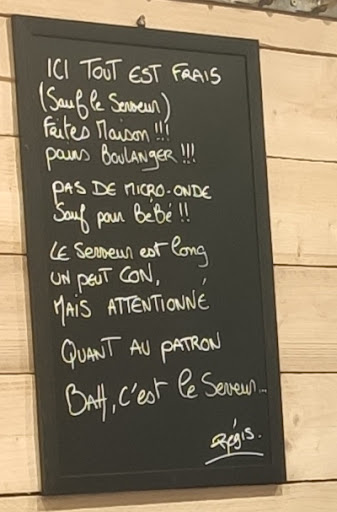 ICI TOUT EST FRAIS
(Sauf le Serveur)
Faites Maison !!!
pains BOULANGER !!!
PAS DE MICRO-ONDE
Sauf pour BéBé !!
LE Serveur est long
UN PEUT CON,
MAIS ATTENTIONNÉ
QUANT AU PATRON
BAH, C'est le Serveur...
Régis.